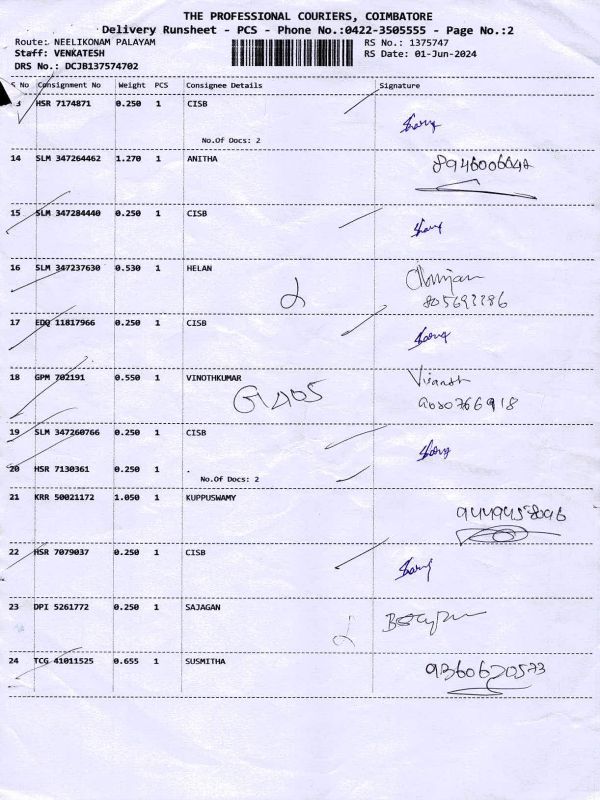 THE PROFESSIONAL COURIERS, COIMBATORE
Delivery Runsheet - PCS - Phone No.:0422-3505555 - Page No.:2
Route: NEELIKONAM PALAYAM RS No.: 1375747
Staff: VENKATESH RS Date: 01-Jun-2024
DRS No.: DCJB137574702
S No Consignment No Weight PCS Consignee Details Signature
HSR 7174871 0.250 1 CISB
No.Of Docs: 2
14 SLM 347264462 1.270 1 ANITHA
15 SLM 347284440 0.250 1 CISB
16 SLM 347237630 0.530 1 HELAN
17 EDQ 11817966 0.250 1 CISB
18 GPM 702191 0.550 1 VINOTHKUMAR
19 SLM 347260766 0.250 1 CISB
20 HSR 7130361 0.250 1 .
No.Of Docs: 2
21 KRR 50021172 1.050 1 KUPPUSWAMY
22 HSR 7079037 0.250 1 CISB
23 DPI 5261772 0.250 1 SAJAGAN
24 TCG 41011525 0.655 1 SUSMITHA
9360670573